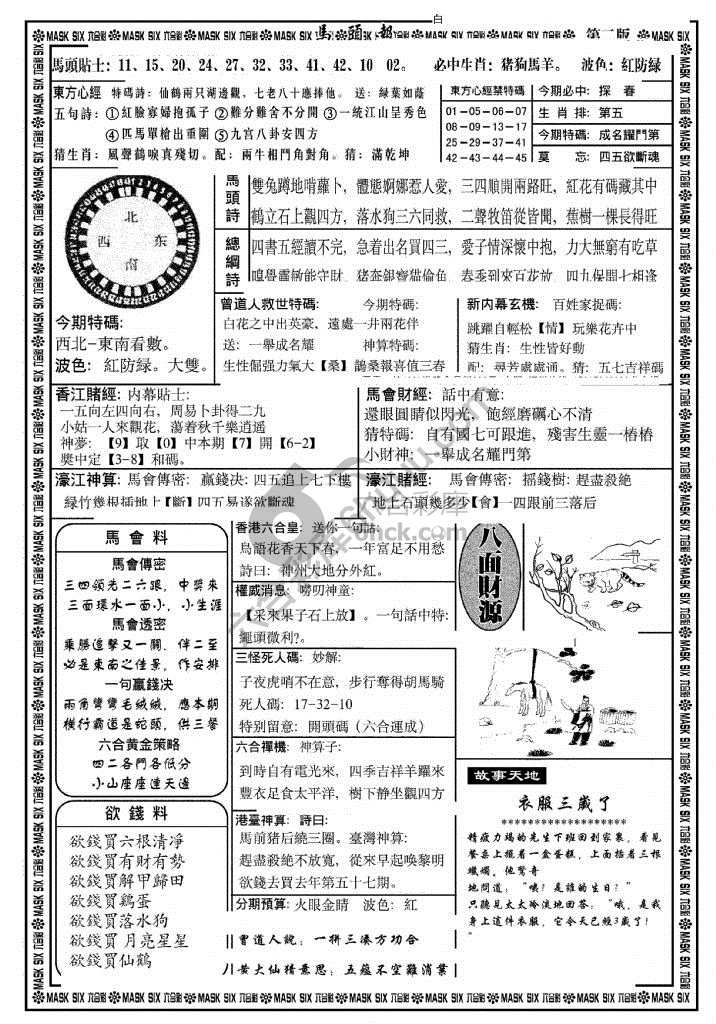 白
馬頭報
第二版
馬頭貼士：11、15、20、24、27、32、33、41、42、10 02。 必中生肖：豬狗馬羊。 波色：紅防緑
東方心經 特碼詩：仙鶴兩只湖邊觀，七老八十應捧他。 送：緑葉如蔭
五句詩：①紅臉寡婦抱孤子 ②難分難舍不分開 ③一統江山呈秀色
④匹馬單槍出重圍 ⑤九宫八卦安四方
猜生肖：風聲鶴唳真殘切。配：兩牛相鬥角對角。猜：滿乾坤
東方心經禁特碼
01－05－06－07
08－09－13－17
25－29－37－41
42－43－44－45
今期必中：探 春
生 肖 排：第五
今期特碼：成名耀門第
莫 忘：四五欲斷魂
北
西 东
南
今期特碼:
西北-東南看數。
波色：紅防緑。大雙。
馬頭詩
雙兔蹲地啃蘿卜，體態婀娜惹人愛，三四順開兩路旺，紅花有碼藏其中
鶴立石上觀四方，落水狗三六同救，二聲牧笛從皆聞，蕉樹一棵長得旺
總綱詩
四書五經讀不完，急着出名買四三，愛子情深懷中抱，力大無窮有吃草
曾道人救世特碼： 今期特碼：
白花之中出英豪，遠處一井兩花伴
送：一舉成名耀 神算特碼：
生性倔强力氣大【桑】鵲桑報喜值三春
新内幕玄機： 百姓家捉碼:
跳躍自輕松【情】玩樂花卉中
猜生肖：生性皆好動
配：尋芳處處通。猜：五七吉祥碼
香江賭經：内幕貼士:
一五向左四向右，周易卜卦得二九
小姑一人來觀花，蕩着秋千樂逍遥
神夢：【9】取【0】中本期【7】開【6-2】
獎中定【3-8】和碼。
馬會財經：話中有意:
還眼圓睛似閃光，飽經磨礪心不清
猜特碼：自有國七可跟進，殘害生靈一樁樁
小財神：一舉成名耀門第
濠江神算：馬會傳密： 贏錢决：四五追上七下樓
緑竹幾根插地上【斷】四五易遂欲斷魂
濠江賭經： 馬會傳密： 摇錢樹：趕盡殺絶
地上石頭幾多少【會】一四跟前三落后
馬會料
馬會傳密
三四領先二六跟，中獎來
三面環水一面小，小生涯
馬會透密
乘勝追擊又一關，伴二至
必是東南之佳景，作安排
一句贏錢决
兩角彎彎毛絨絨，應本期
横行霸道是蛇頭，供三餐
六合黄金策略
四二各門各低分
小山座座連天邊
欲錢料
欲錢買六根清凈
欲錢買有財有勢
欲錢買解甲歸田
欲錢買鷄蛋
欲錢買落水狗
欲錢買月亮星星
欲錢買仙鶴
香港六合皇：送你一句話:
鳥語花香天下春，一年富足不用愁
詩曰：神州大地分外紅。
權威消息：嘮叨神童:
【采來果子石上放】。一句話中特:
蠅頭微利?。
三怪死人碼：妙解:
子夜虎哨不在意，步行奪得胡馬騎
死人碼：17-32-10
特别留意：開頭碼（六合運成）
六合禪機：神算子:
到時自有電光來，四季吉祥羊躍來
豐衣足食太平洋，樹下静坐觀四方
港臺神算：詩曰:
馬前猪后繞三圈。臺灣神算:
趕盡殺絶不放寬，從來早起唤黎明
欲錢去買去年第五十七期。
分期預算：火眼金睛 波色：紅
曾道人説：一拼三湊方功合
黄大仙猜意思：五藴不空難消業
八面財源
故事天地
衣服三歲了
********************
精疲力竭的先生下班回到家裏，看見
餐桌上擺着一盒蛋糕，上面插着三根
蠟燭。他驚奇
地問道：“咦？是誰的生日？”
只聽見太太冷淡地回答：“哦，是我
身上這件衣服，它今天已經3歲了！
”